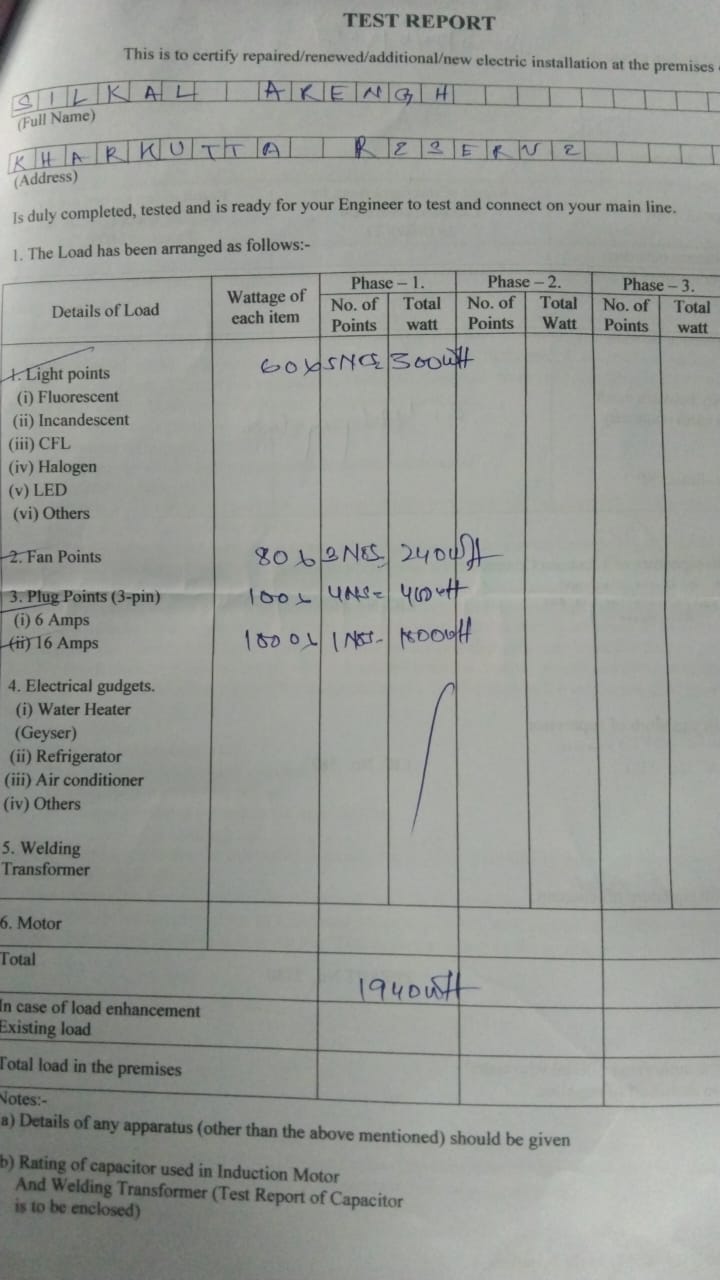 TEST REPORT
This is to certify repaired/renewed/additional/new electric installation at the premises
SILKAL ARENGH
(Full Name)
KHARKUTTA RESERVE
(Address)
Is duly completed, tested and is ready for your Engineer to test and connect on your main line.
1. The Load has been arranged as follows:-
Details of Load Wattage of each item Phase – 1. Phase – 2. Phase – 3.
No. of Points Total watt No. of Points Total Watt No. of Points Total watt
1. Light points 60 x 5 Nos 300 wtt
(i) Fluorescent
(ii) Incandescent
(iii) CFL
(iv) Halogen
(v) LED
(vi) Others
2. Fan Points 80 x 3 Nos 240 wtt
3. Plug Points (3-pin) 100 x 4 Nos = 400 wtt
(i) 6 Amps
(ii) 16 Amps 1000 x 1 Nos - 1000 wtt
4. Electrical gudgets.
(i) Water Heater
(Geyser)
(ii) Refrigerator
(iii) Air conditioner
(iv) Others
5. Welding
Transformer
6. Motor
Total 1940 wtt
In case of load enhancement
Existing load
Total load in the premises
Notes:-
a) Details of any apparatus (other than the above mentioned) should be given
b) Rating of capacitor used in Induction Motor
And Welding Transformer (Test Report of Capacitor
is to be enclosed)